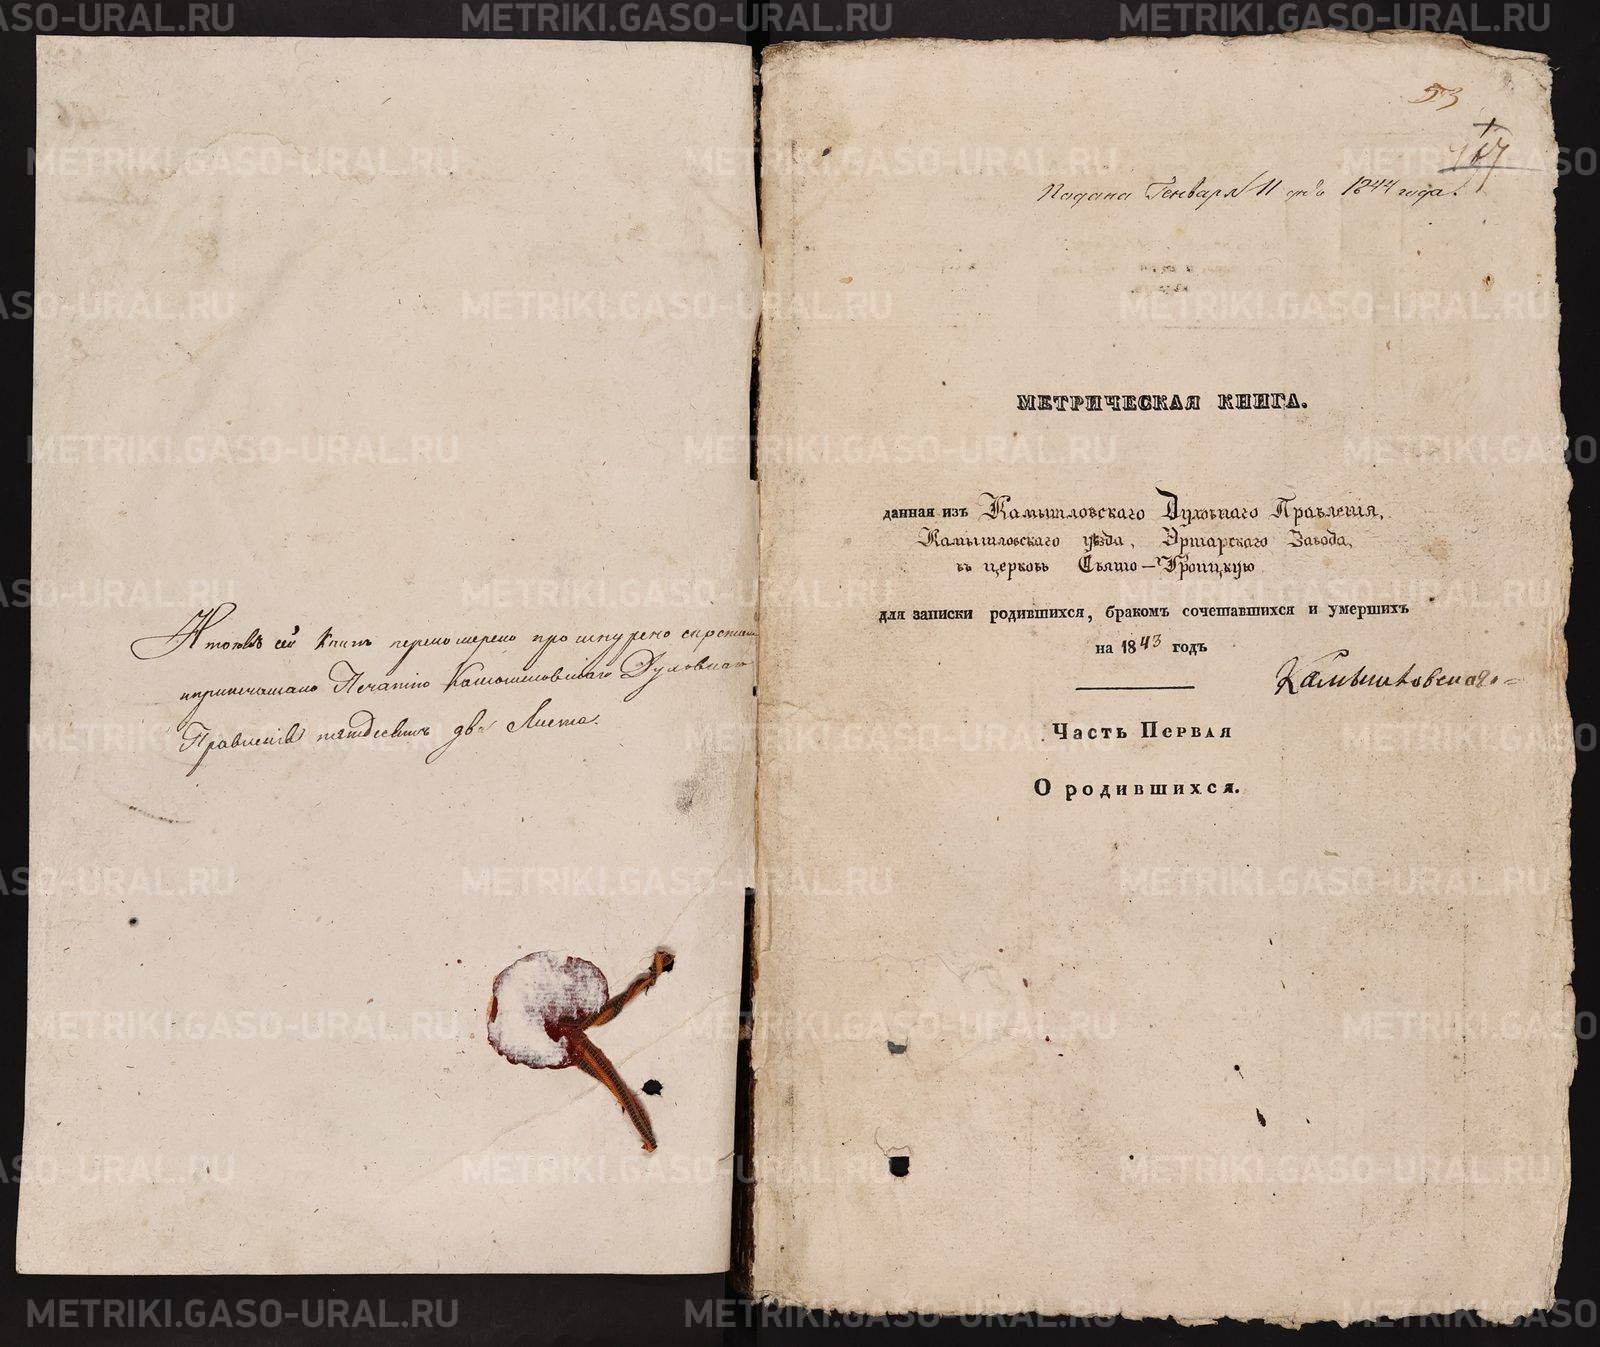 Итого въ сей Книгѣ перенумерено прошнурено скреплено
и припечатано Печатью Камышловскаго Духовнаго
Правленія пятдесятъ два Листа.
53
Подана Генваря 11 дня 1844 года.
МЕТРИЧЕСКАЯ КНИГА.
данная изъ Камышловскаго Духовнаго Правленія,
Камышловскаго уѣзда, Ертарскаго Завода,
въ церковь Свято-Троицкую
для записки родившихся, бракомъ сочетавшихся и умершихъ
на 1843 годъ
Камышловскаго
Часть Первая
О родившихся.
METRIKI.GASO-URAL.RU